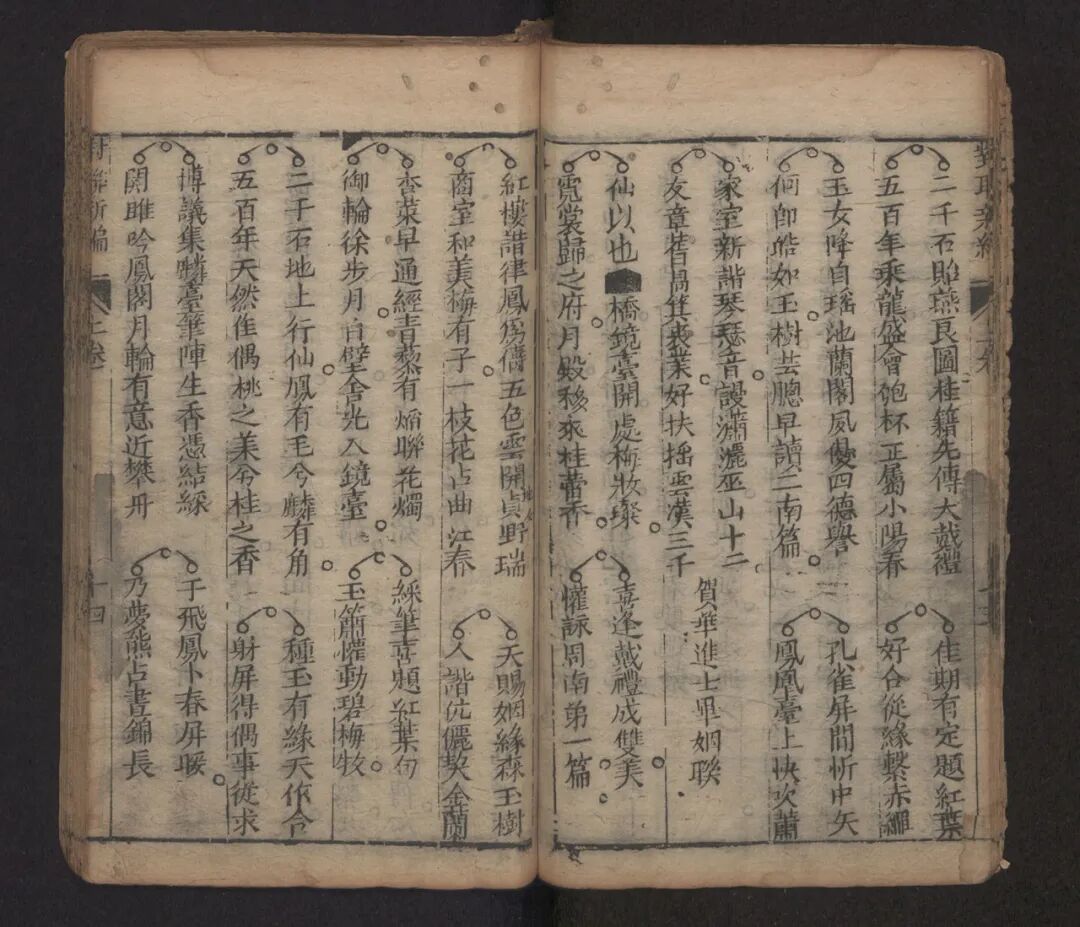 二千石貽燕良圖桂籍先傳大戴禮
五百年乘龍盛會匏杯正屬小陽春
佳期有定題紅葉
好合從緣繫赤繩
玉女降自瑤池蘭閣夙嫻四德譽
何郎皓如玉樹芸牕早讀二南篇
孔雀屏間忻中矢
鳳凰臺上快吹簫
家室新諧琴瑟音謾瀟灑巫山十二
友章昔咼箕裘業好扶搖雲漢三千
賀華進士畢姻聯
仙以也 橋鏡臺開處梅妝璨
霓裳歸之府月殿移來桂蕾香
喜逢戴禮成雙美
懽詠周南第一篇
紅樓諧律鳳旁儔五色雲開貞野瑞
商室和美梅有子一枝花占曲江春
天賜姻緣森玉樹
人諧伉儷契金蘭
杏菜早通經青藜有熖聯花燭
御輪徐步月百璧含光入鏡臺
綵筆喜題紅葉句
玉簫懽動碧梅牧
二千石地上行仙鳳有毛兮麟有角
五百年天然佳偶桃之美兮桂之香
種玉有緣天作合
射屏得偶事從求
博議集麟臺筆陣生香憑結綵
関雎吟鳳閣月輪有意近攀丹
于飛鳳卜春屏暖
乃夢熊占晝錦長
對聯新編
二卷
十四